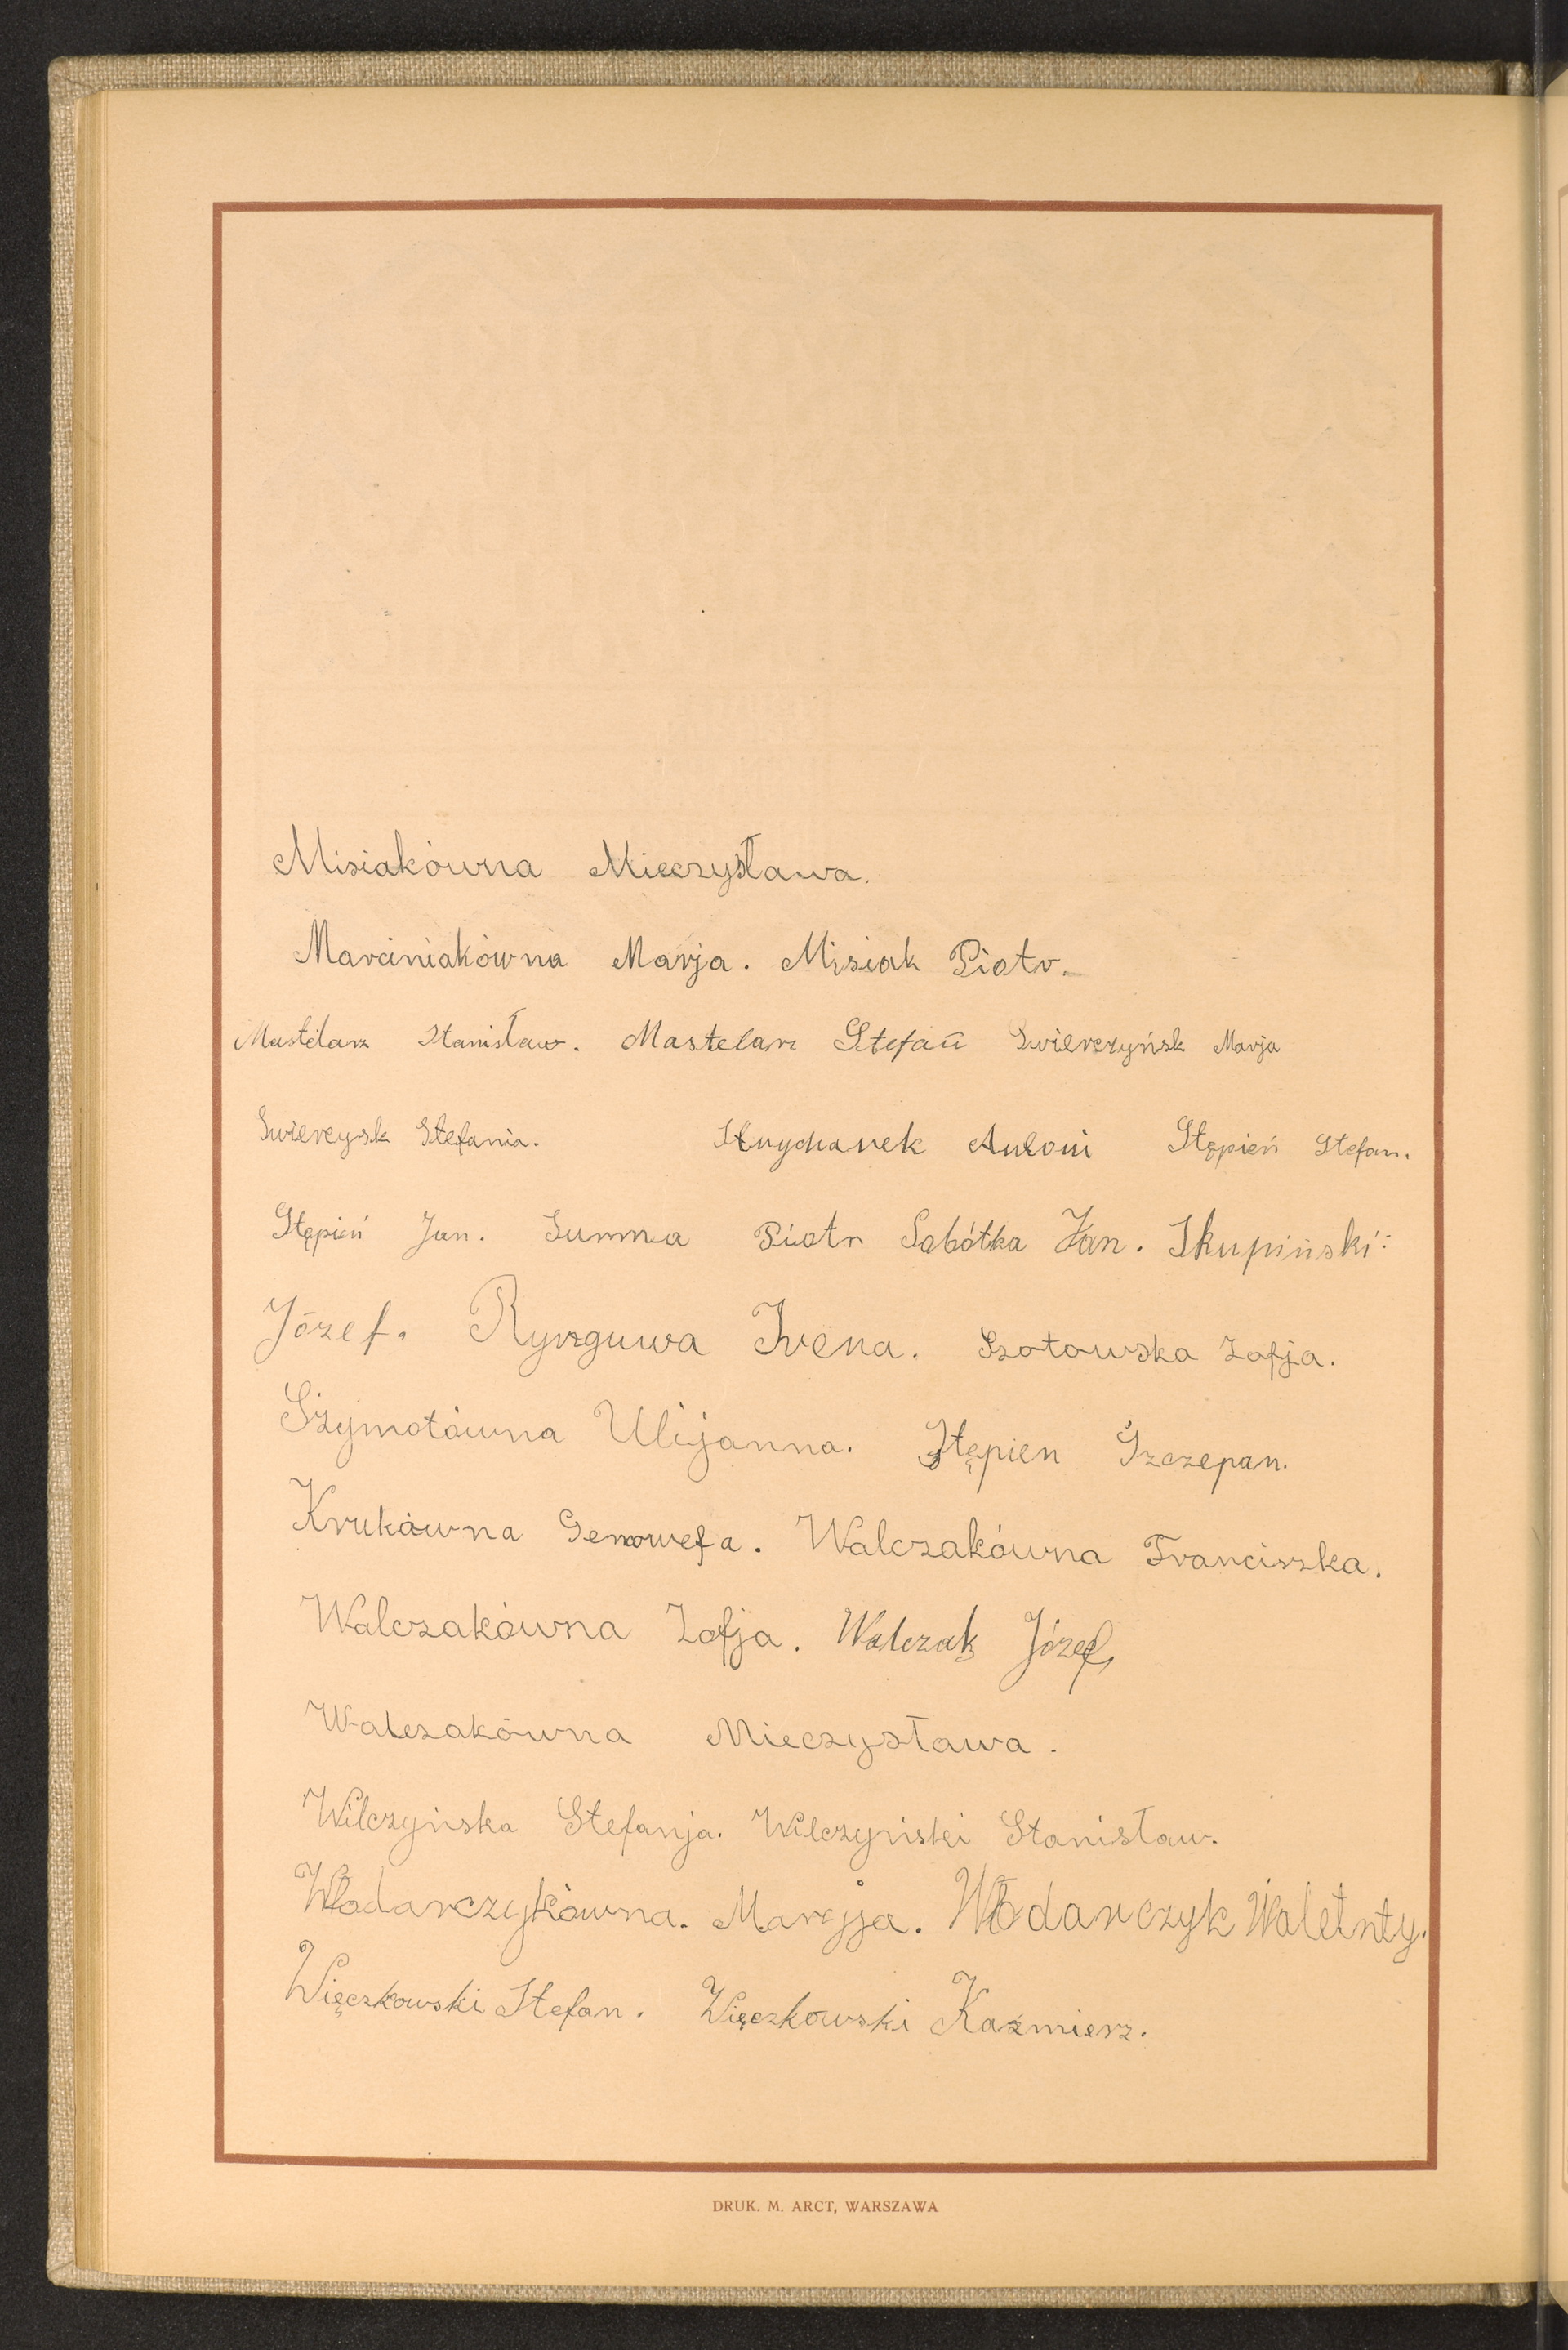 Misiakówna Mieczysława.
Marciniakówna Marja. Misiak Piotr.
Mastelarz Stanisław. Mastelarz Stefan Swierczyńsk Marja
Swierczysk Stefania. Antoni Stępień Stefan.
Stępień Jan. Summa Piotr Sobótka Jan. Skupiński:
Józef. Irena. Szotowska Zofja.
Szymotówna Ulijanna. Stępien Szczepan.
Krukówna Genowefa. Walczakówna Franciszka.
Walczakówna Zofja. Walczak Józef,
Walczakówna Mieczysława.
Wilczyńska Stefanja. Wilczyński Stanisław.
Włodarczykówna. Maryja. Włodarczyk Waletnty.
Więczkowski Stefan. Więczkowski Kazmierz.
DRUK. M. ARCT, WARSZAWA